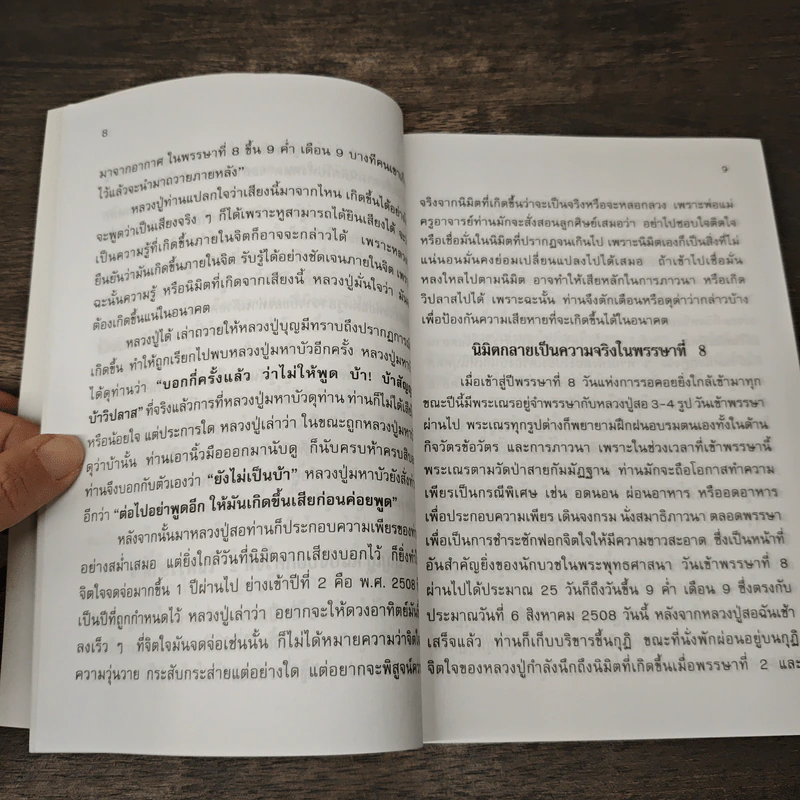 8
มาจากอากาศ ในพรรษาที่ 8 ขึ้น 9 ค่ำ เดือน 9 บางทีคนเขา
ไว้แล้วจะนำมาถวายภายหลัง”
หลวงปู่ท่านแปลกใจว่าเสียงนี้มาจากไหน เกิดขึ้นได้อย่าง
จะพูดว่าเป็นเสียงจริง ๆ ก็ได้เพราะหูสามารถได้ยินเสียงได้ จะ
เป็นความรู้ที่เกิดขึ้นภายในจิตก็อาจจะกล่าวได้ เพราะหลวง
ยืนยันว่ามันเกิดขึ้นภายในจิต รับรู้ได้อย่างชัดเจนภายในจิต เพ
ฉะนั้นความรู้ หรือนิมิตที่เกิดจากเสียงนี้ หลวงปู่มั่นใจว่า มัน
ต้องเกิดขึ้นแน่ในอนาคต
หลวงปู่ได้ เล่าถวายให้หลวงปู่บุญมีทราบถึงปรากฏการณ์
เกิดขึ้น ทำให้ถูกเรียกไปพบหลวงปู่มหาบัวอีกครั้ง หลวงปู่มหา
ได้ดุท่านว่า “บอกกี่ครั้งแล้ว ว่าไม่ให้พูด บ้า! บ้าสัญญ
บ้าวิปลาส” ที่จริงแล้วการที่หลวงปู่มหาบัวดุท่าน ท่านก็ไม่ได้เสีย
หรือน้อยใจ แต่ประการใด หลวงปู่เล่าว่า ในขณะถูกหลวงปู่มหา
ดุว่าบ้านั้น ท่านเอานิ้วมือออกมานับดู ก็นับครบห้าครบสิบ
ท่านจึงบอกกับตัวเองว่า “ยังไม่เป็นบ้า” หลวงปู่มหาบัวยังสั่ง
อีกว่า “ต่อไปอย่าพูดอีก ให้มันเกิดขึ้นเสียก่อนค่อยพูด”
หลังจากนั้นมาหลวงปู่สอท่านก็ประกอบความเพียรของท่
อย่างสม่ำเสมอ แต่ยิ่งใกล้วันที่นิมิตจากเสียงบอกไว้ ก็ยิ่งทำ
จิตใจจดจ่อมากขึ้น 1 ปีผ่านไป ย่างเข้าปีที่ 2 คือ พ.ศ. 2508
เป็นปีที่ถูกกำหนดไว้ หลวงปู่เล่าว่า อยากจะให้ดวงอาทิตย์มัน
ลงเร็ว ๆ ที่จิตใจมันจดจ่อเช่นนั้น ก็ไม่ได้หมายความว่าจิต
ความวุ่นวาย กระสับกระส่ายแต่อย่างใด แต่อยากจะพิสูจน์ควา
9
จริงจากนิมิตที่เกิดขึ้นว่าจะเป็นจริงหรือจะหลอกลวง เพราะพ่อแม่
ครูอาจารย์ท่านมักจะสั่งสอนลูกศิษย์เสมอว่า อย่าไปชอบใจติดใจ
หรือเชื่อมั่นในนิมิตที่ปรากฏจนเกินไป เพราะนิมิตเองก็เป็นสิ่งที่ไม่
แน่นอนมั่นคงย่อมเปลี่ยนแปลงไปได้เสมอ ถ้าเข้าไปเชื่อมั่น
หลงใหลไปตามนิมิต อาจทำให้เสียหลักในการภาวนา หรือเกิด
วิปลาสไปได้ เพราะฉะนั้น ท่านจึงตักเตือนหรือดุด่าว่ากล่าวบ้าง
เพื่อป้องกันความเสียหายที่จะเกิดขึ้นได้ในอนาคต
นิมิตกลายเป็นความจริงในพรรษาที่ 8
เมื่อเข้าสู่ปีพรรษาที่ 8 วันแห่งการรอคอยยิ่งใกล้เข้ามาทุก
ขณะปีนี้มีพระเณรอยู่จำพรรษากับหลวงปู่สอ 3-4 รูป วันเข้าพรรษา
ผ่านไป พระเณรทุกรูปต่างก็พยายามฝึกฝนอบรมตนเองทั้งในด้าน
กิจวัตรข้อวัตร และการภาวนา เพราะในช่วงเวลาที่เข้าพรรษานี้
พระเณรตามวัดป่าสายกัมมัฏฐาน ท่านมักจะถือโอกาสทำความ
เพียรเป็นกรณีพิเศษ เช่น อดนอน ผ่อนอาหาร หรืออดอาหาร
เพื่อประกอบความเพียร เดินจงกรม นั่งสมาธิภาวนา ตลอดพรรษา
เพื่อเป็นการชำระซักฟอกจิตใจให้มีความขาวสะอาด ซึ่งเป็นหน้าที่
อันสำคัญยิ่งของนักบวชในพระพุทธศาสนา วันเข้าพรรษาที่ 8
ผ่านไปได้ประมาณ 25 วันก็ถึงวันขึ้น 9 ค่ำ เดือน 9 ซึ่งตรงกับ
ประมาณวันที่ 6 สิงหาคม 2508 วันนี้ หลังจากหลวงปู่สอฉันเช้า
เสร็จแล้ว ท่านก็เก็บบริขารขึ้นกุฏิ ขณะที่นั่งพักผ่อนอยู่บนกุฏิ
จิตใจของหลวงปู่กำลังนึกถึงนิมิตที่เกิดขึ้นเมื่อพรรษาที่ 2 และ